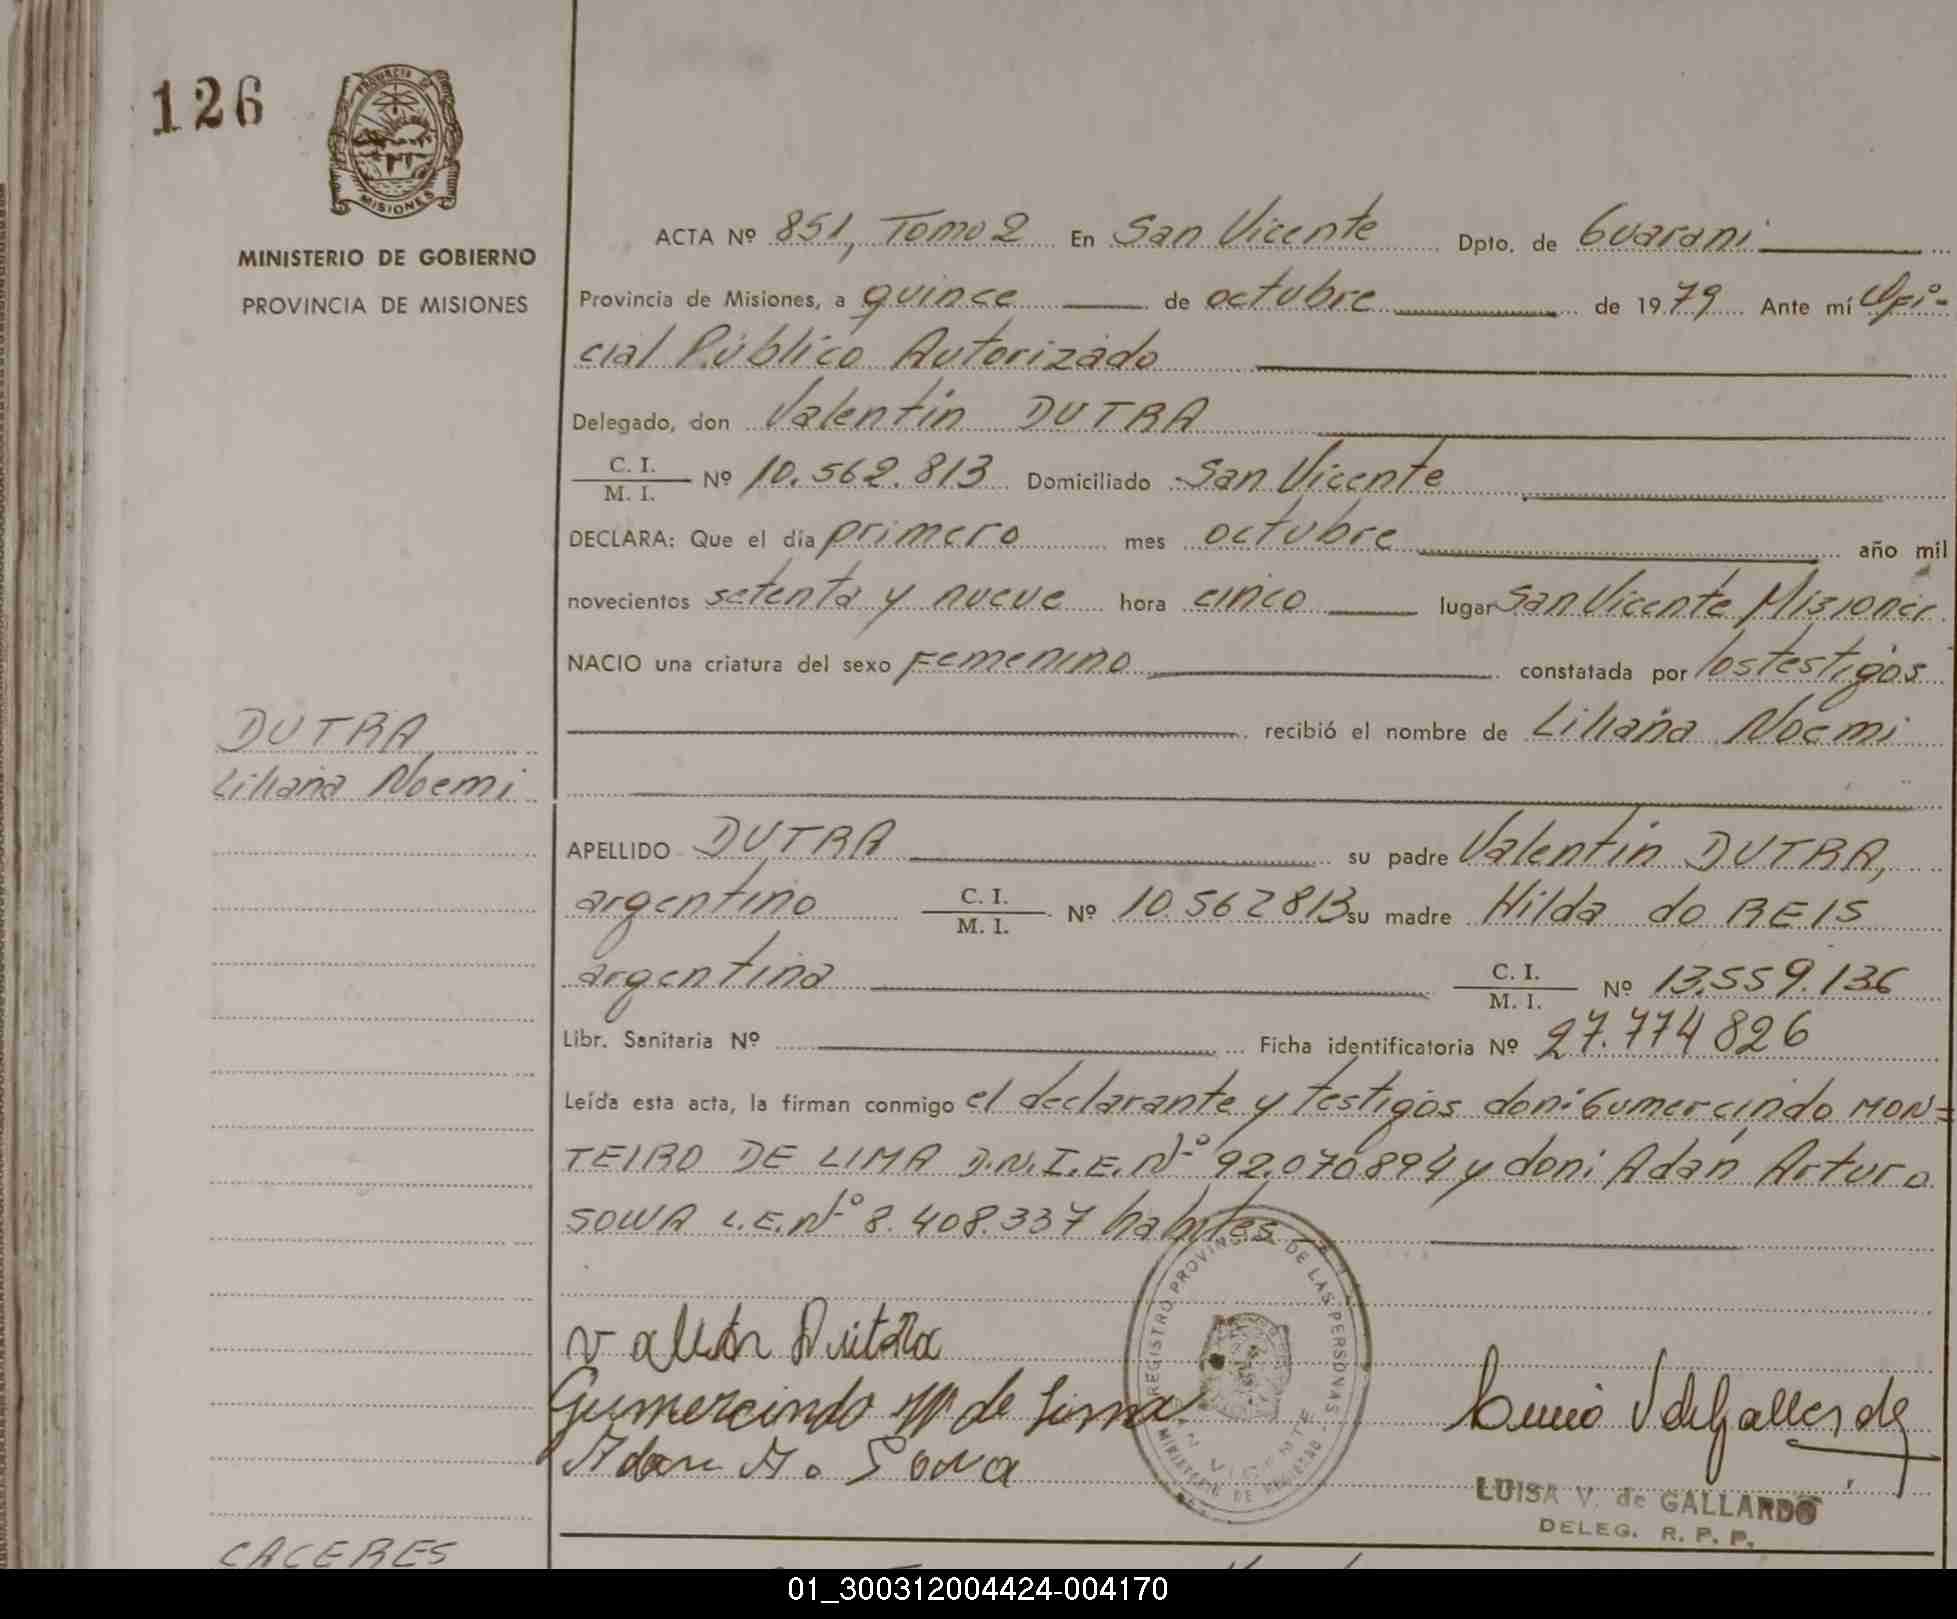 126
PROVINCIA DE
MISIONES
MINISTERIO DE GOBIERNO
PROVINCIA DE MISIONES
ACTA Nº 851, Tomo 2 En San Vicente Dpto. de Guarani
Provincia de Misiones, a quince de octubre de 1979 Ante mí Ofi-
cial Público Autorizado
Delegado, don Valentin DUTRA
C. I.
M. I. Nº 10.562.813 Domiciliado San Vicente
DECLARA: Que el día primero mes octubre año mil
novecientos setenta y nueve hora cinco lugar San Vicente Misiones
NACIO una criatura del sexo Femenino constatada por los testigos
recibió el nombre de Liliana Noemi
DUTRA
Liliana Noemi
APELLIDO DUTRA su padre Valentin DUTRA,
argentino C. I.
M. I. Nº 10.562813 su madre Hilda do REIS
argentina C. I.
M. I. Nº 13.559.136
Libr. Sanitaria Nº Ficha identificatoria Nº 27.774826
Leída esta acta, la firman conmigo el declarante y testigos don: Gumercindo MON=
TEIRO DE LIMA D.N.I.E. Nº 92.070.894 y don: Adán Arturo
SOWA L.E. Nº 8.408.337 habites
Dutra
Gumercindo M de Lima
Adan A. Sova
REGISTRO PROVINCIAL DE LAS PERSONAS
MINISTERIO DE
VICENTE
V de Gallardo
LUISA V. de GALLARDO
DELEG. R. P. P.
CACERES
01_300312004424-004170